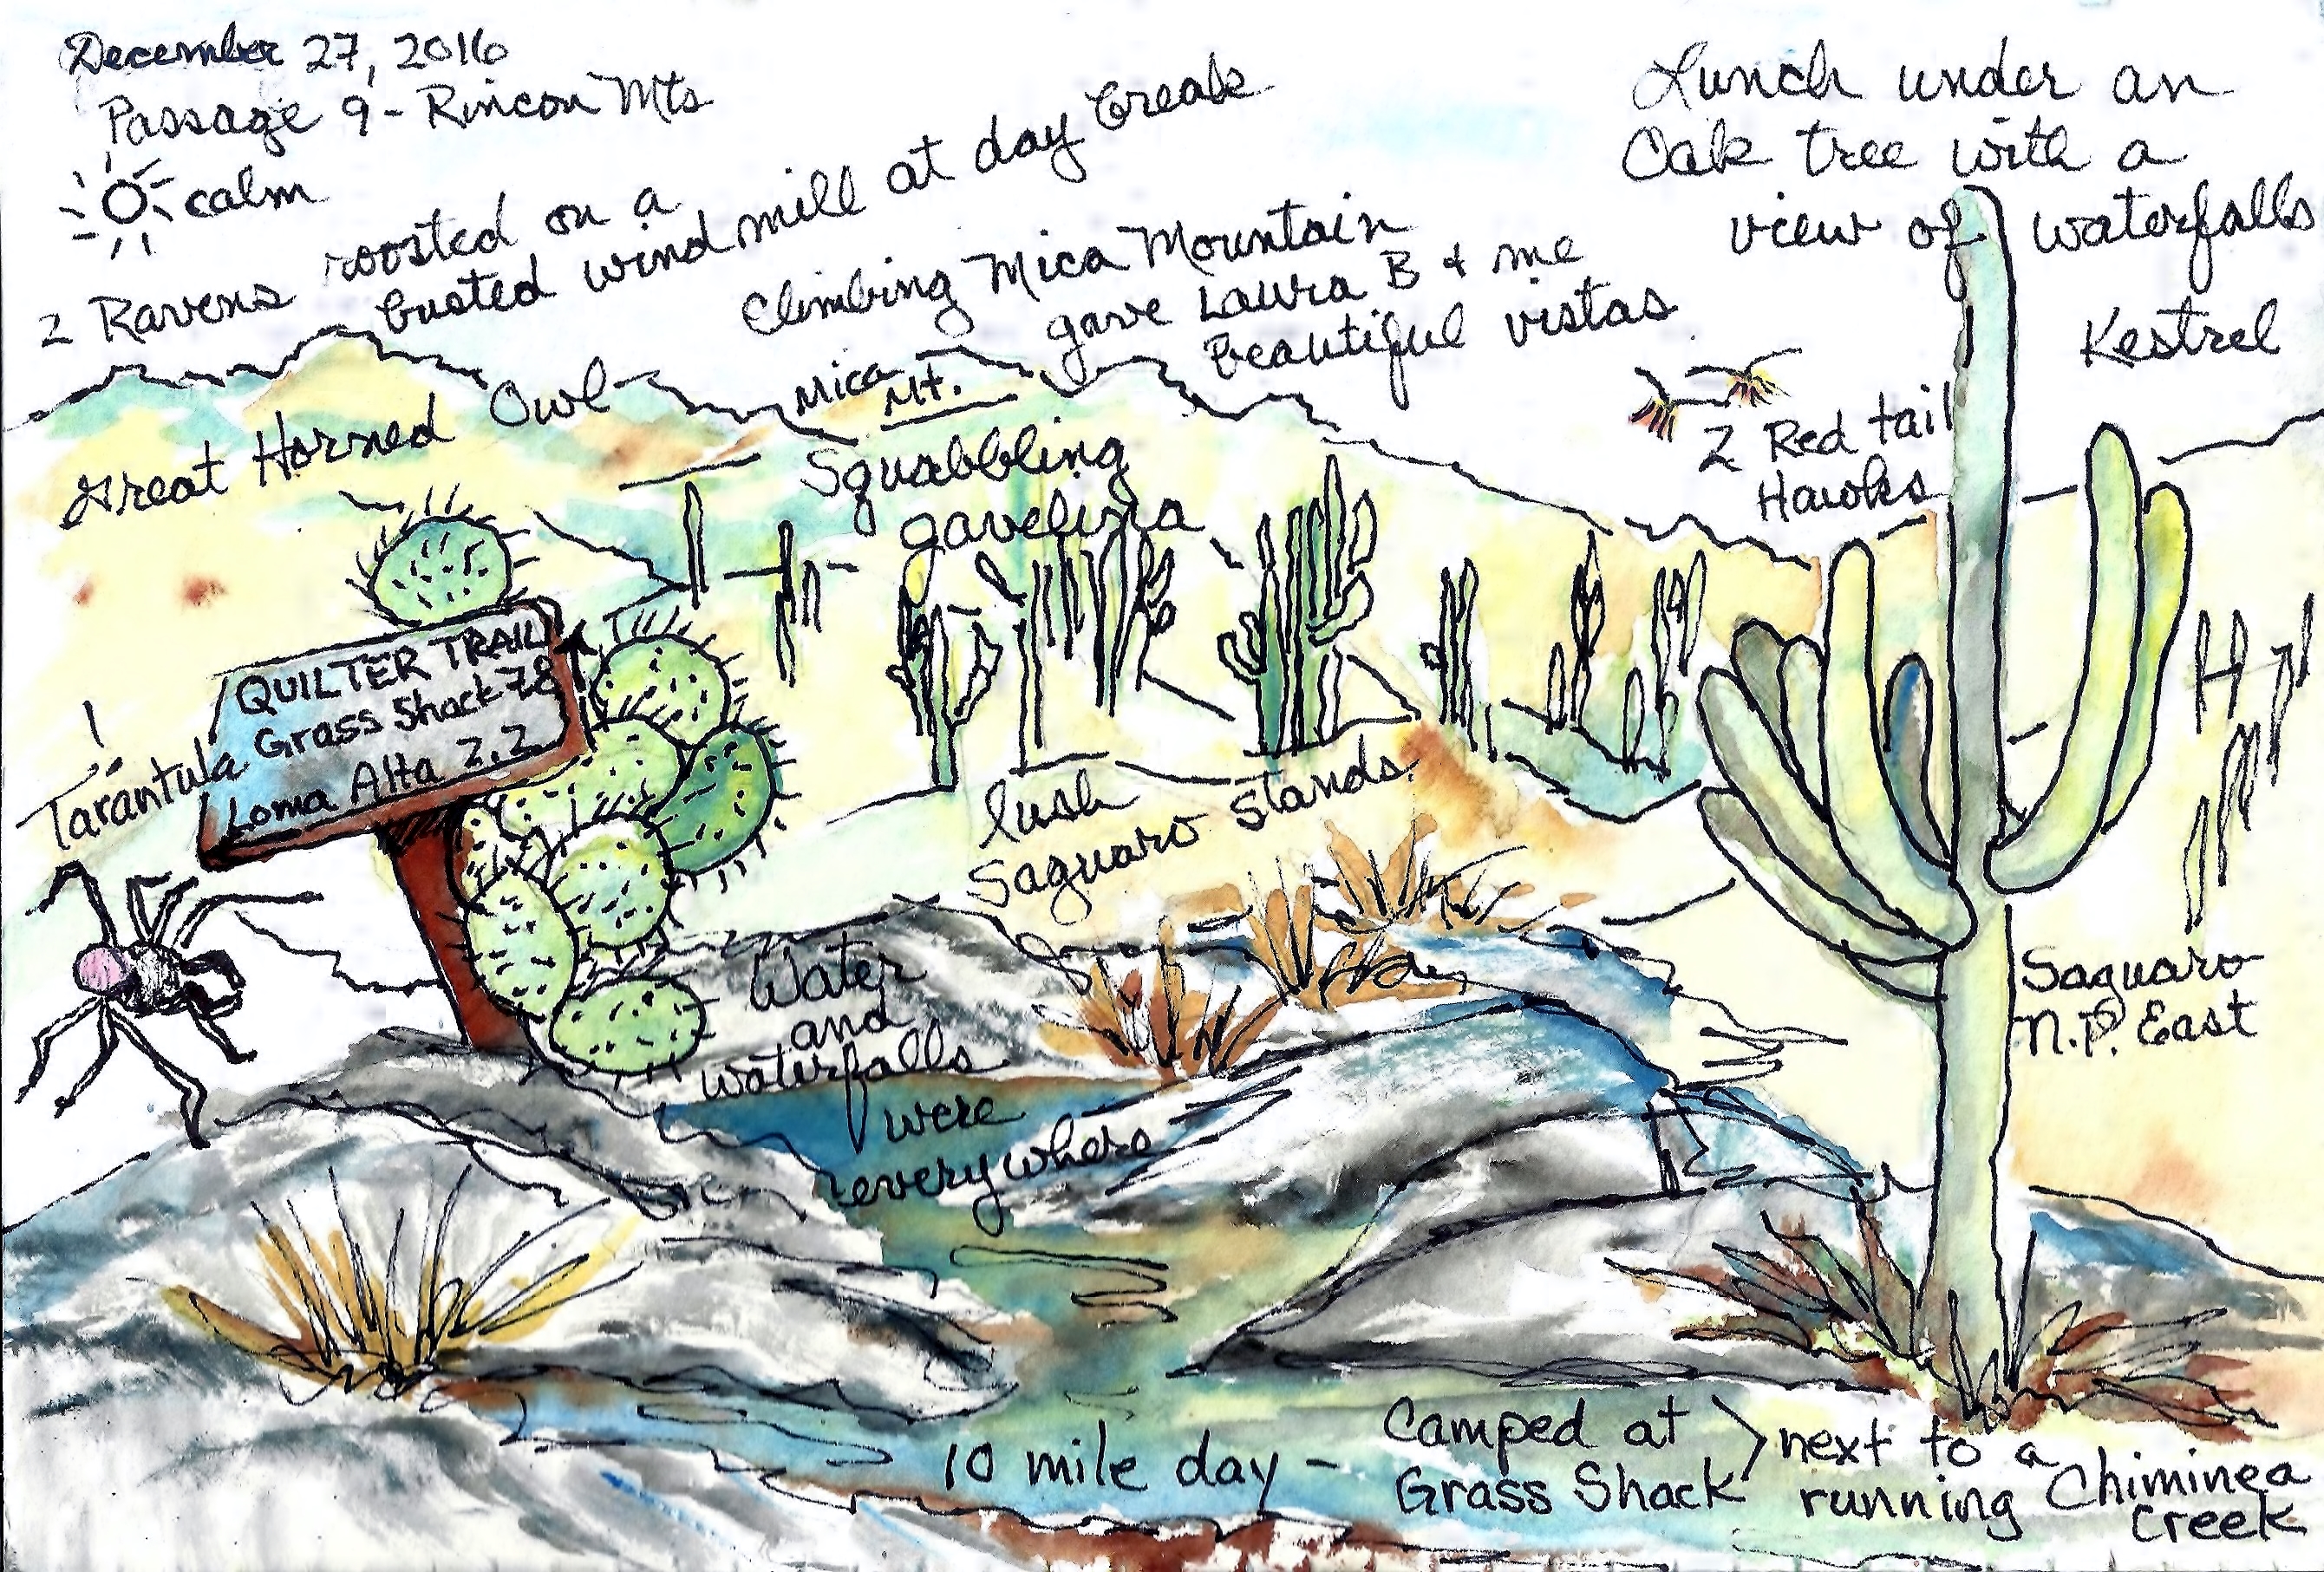 December 27, 2016
Passage 9 - Rincon Mts
calm
2 Ravens roosted on a
busted wind mill at day break
Climbing Mica Mountain
gave Laura B & me
beautiful vistas
Lunch under an
Oak tree with a
view of waterfalls
Kestrel
2 Red tail
Hawks
Great Horned Owl
Mica
Mt.
Squabbling
javelina
QUILTER TRAIL
Grass Shack 7.8
Loma Alta 2.2
Tarantula!
lush
Saguaro Stands
Saguaro
N.P. East
Water
and
waterfalls
were
everywhere
10 mile day -
Camped at
Grass Shack
next to a
running Chiminea
Creek